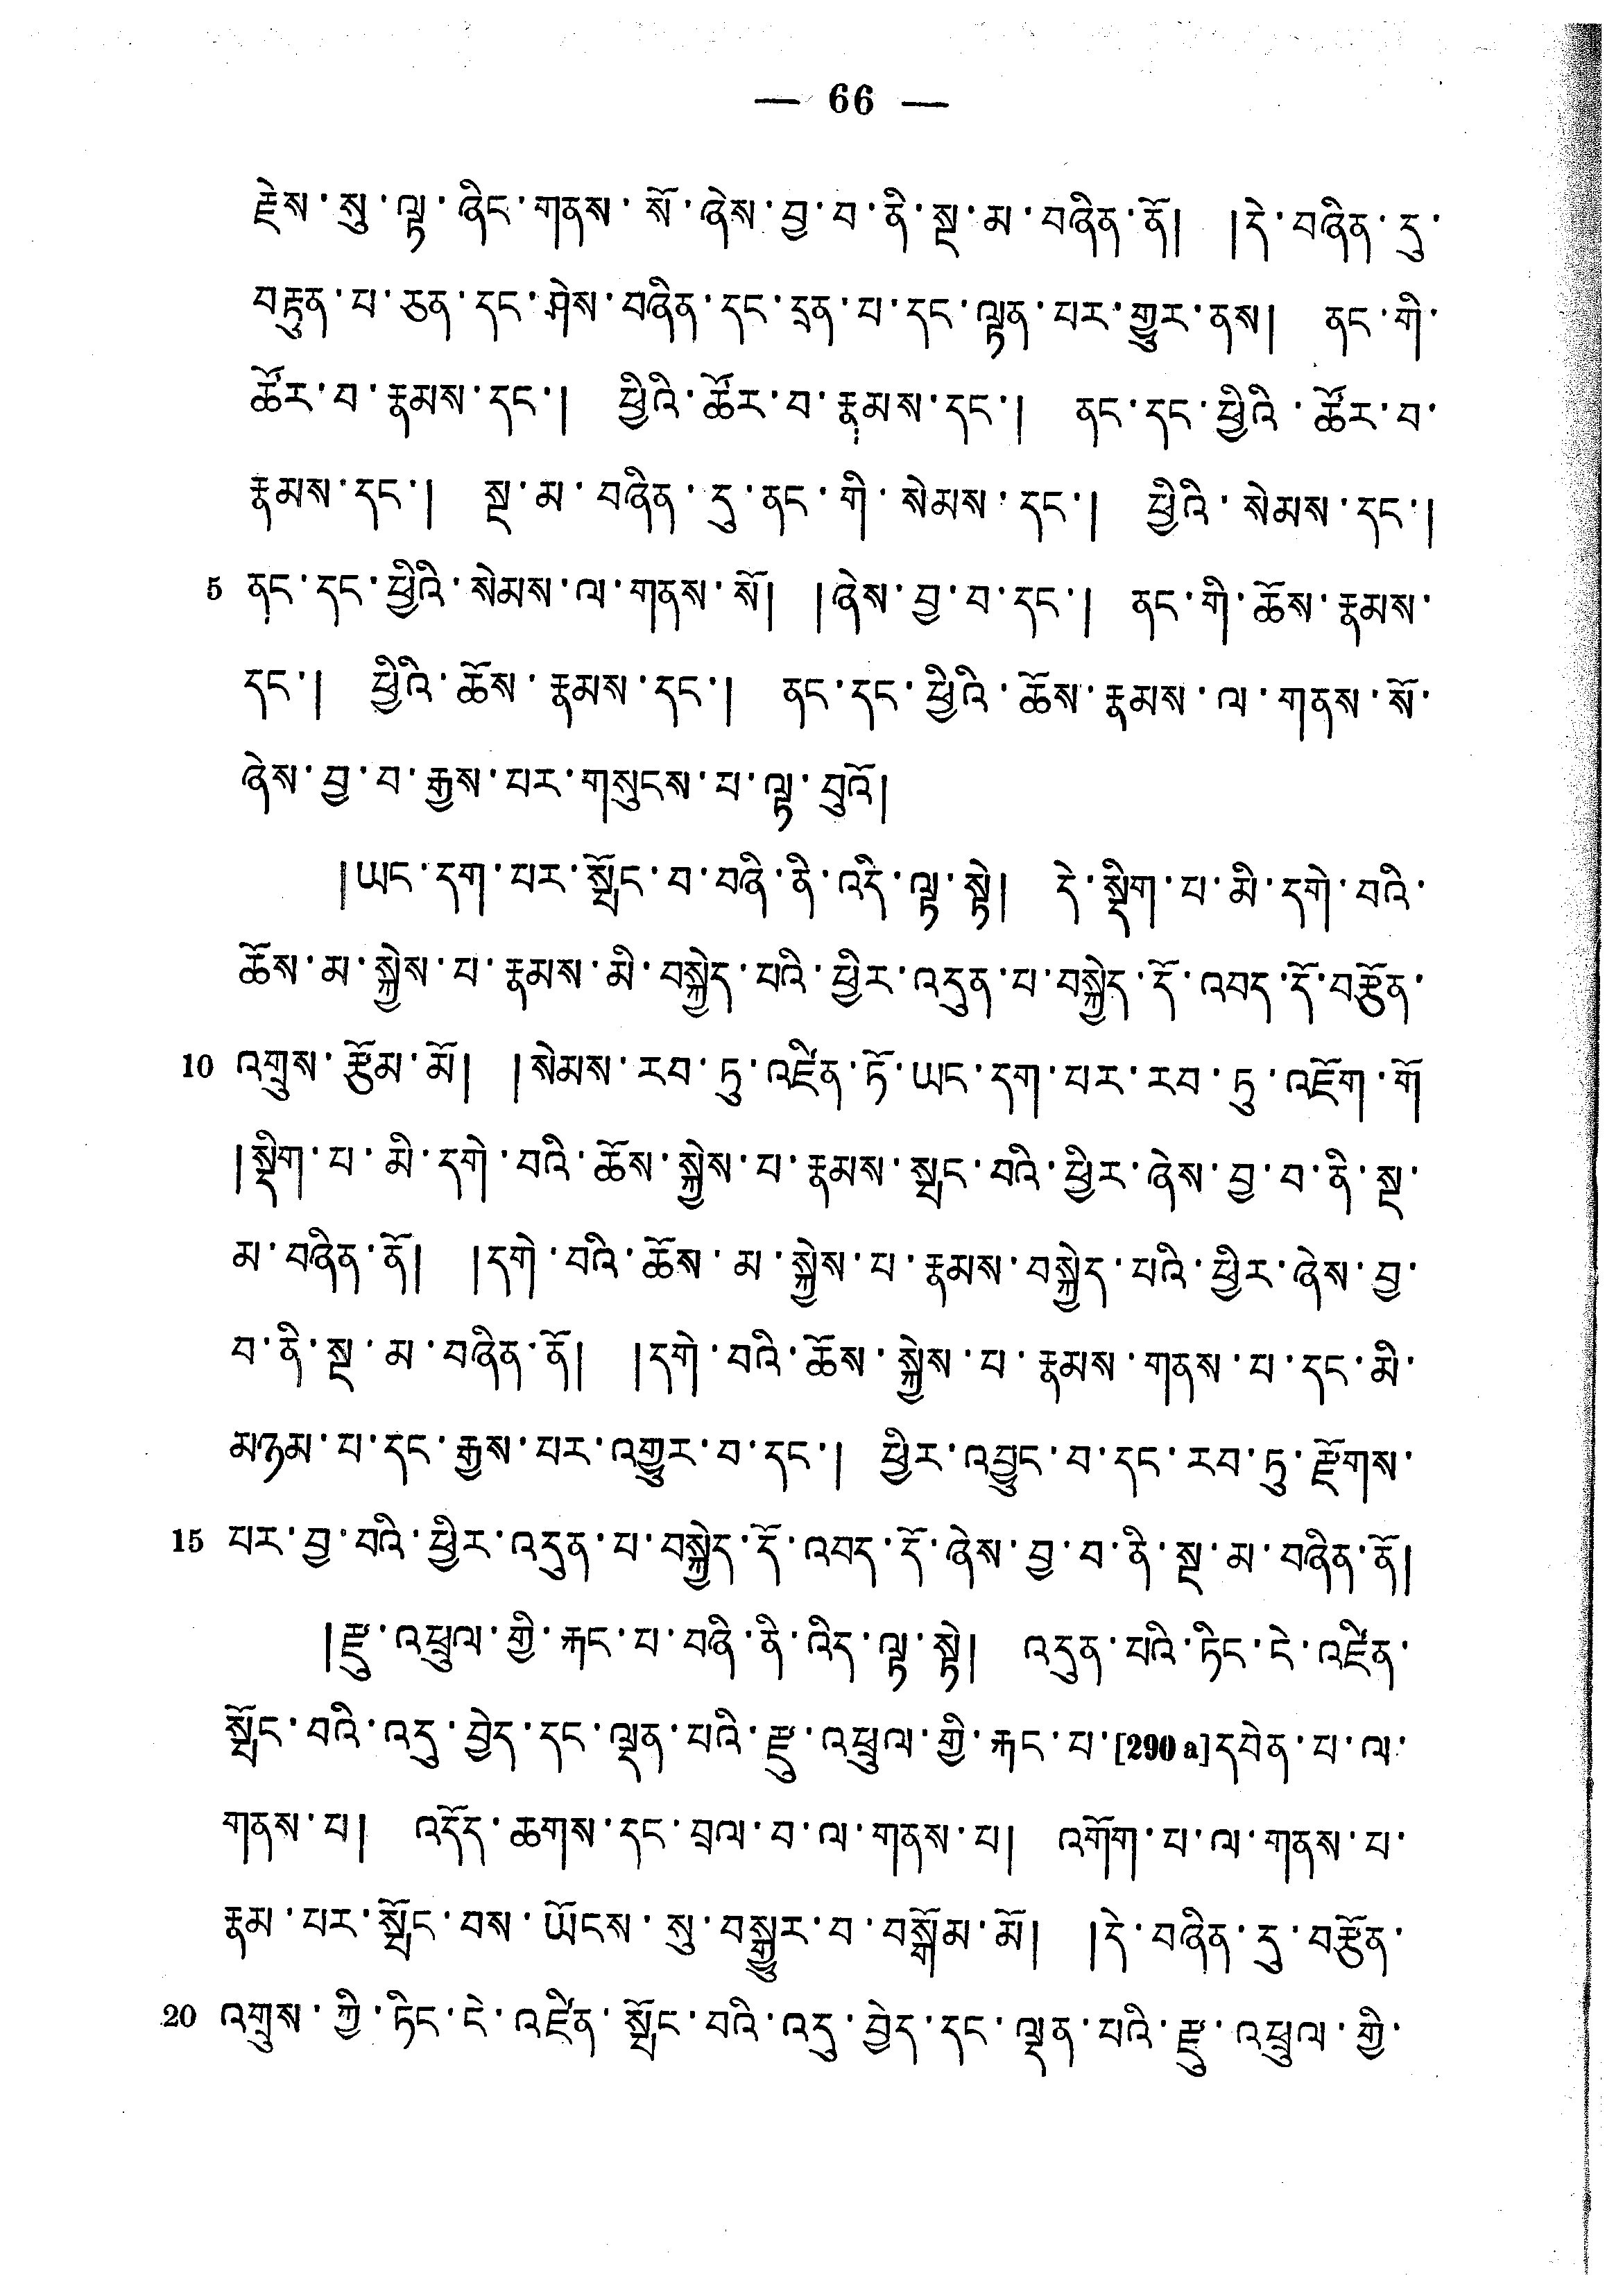 — 66 —
རྗེས་སུ་ལྟ་ཞིང་གནས་སོ་ཞེས་བྱ་བ་ནི་སྔ་མ་བཞིན་ནོ། །དེ་བཞིན་དུ་
བརྟུན་པ་ཅན་དང་ཤེས་བཞིན་དང་དྲན་པ་དང་ལྡན་པར་གྱུར་ནས། ནང་གི་
ཚོར་བ་རྣམས་དང་། ཕྱིའི་ཚོར་བ་རྣམས་དང་། ནང་དང་ཕྱིའི་ཚོར་བ་
རྣམས་དང་། སྔ་མ་བཞིན་དུ་ནང་གི་སེམས་དང་། ཕྱིའི་སེམས་དང་།
5 ནང་དང་ཕྱིའི་སེམས་ལ་གནས་སོ། །ཞེས་བྱ་བ་དང་། ནང་གི་ཆོས་རྣམས་
དང་། ཕྱིའི་ཆོས་རྣམས་དང་། ནང་དང་ཕྱིའི་ཆོས་རྣམས་ལ་གནས་སོ་
ཞེས་བྱ་བ་རྒྱས་པར་གསུངས་པ་ལྟ་བུའོ།
།ཡང་དག་པར་སྤོང་བ་བཞི་ནི་འདི་ལྟ་སྟེ། དེ་སྡིག་པ་མི་དགེ་བའི་
ཆོས་མ་སྐྱེས་པ་རྣམས་མི་བསྐྱེད་པའི་ཕྱིར་འདུན་པ་བསྐྱེད་དོ་འབད་དོ་བརྩོན་
10 འགྲུས་རྩོམ་མོ། །སེམས་རབ་ཏུ་འཛིན་ཏོ་ཡང་དག་པར་རབ་ཏུ་འཇོག་གོ
།སྡིག་པ་མི་དགེ་བའི་ཆོས་སྐྱེས་པ་རྣམས་སྤང་བའི་ཕྱིར་ཞེས་བྱ་བ་ནི་སྔ་
མ་བཞིན་ནོ། །དགེ་བའི་ཆོས་མ་སྐྱེས་པ་རྣམས་བསྐྱེད་པའི་ཕྱིར་ཞེས་བྱ་
བ་ནི་སྔ་མ་བཞིན་ནོ། །དགེ་བའི་ཆོས་སྐྱེས་པ་རྣམས་གནས་པ་དང་མི་
མཉམ་པ་དང་རྒྱས་པར་འགྱུར་བ་དང་། ཕྱིར་འབྱུང་བ་དང་རབ་ཏུ་རྫོགས་
15 པར་བྱ་བའི་ཕྱིར་འདུན་པ་བསྐྱེད་དོ་འབད་དོ་ཞེས་བྱ་བ་ནི་སྔ་མ་བཞིན་ནོ།
།རྫུ་འཕྲུལ་གྱི་རྐང་པ་བཞི་ནི་འིད་ལྟ་སྟེ། འདུན་པའི་ཏིང་ངེ་འཛིན་
སྤོང་བའི་འདུ་བྱེད་དང་ལྡན་པའི་རྫུ་འཕྲུལ་གྱི་རྐང་པ་[290 a]དབེན་པ་ལ་
གནས་པ། འདོད་ཆགས་དང་བྲལ་བ་ལ་གནས་པ། འགོག་པ་ལ་གནས་པ་
རྣམ་པར་སྤོང་བས་ཡོངས་སུ་བསྒྱུར་བ་བསྒོམ་མོ། །དེ་བཞིན་དུ་བརྩོན་
20 འགྲུས་ཀྱི་ཏིང་ངེ་འཛིན་སྤོང་བའི་འདུ་བྱེད་དང་ལྡན་པའི་རྫུ་འཕྲུལ་གྱི་